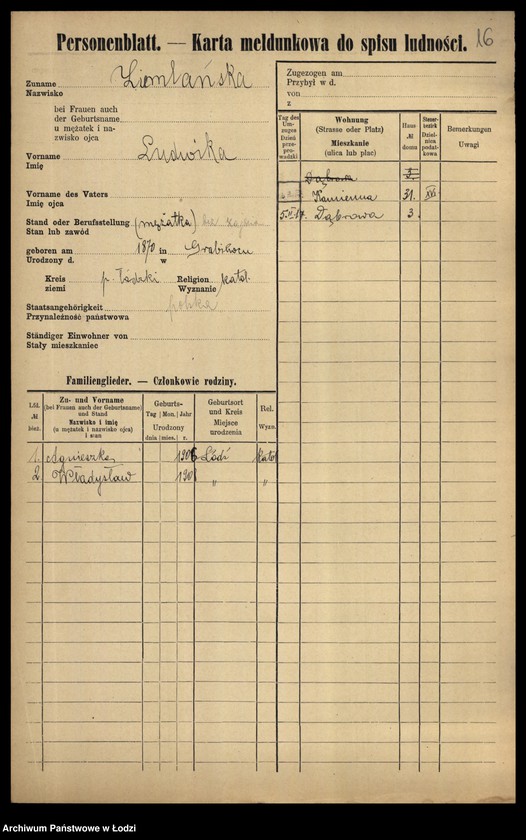 Personenblatt. — Karta meldunkowa do spisu ludności. 16
Zuname
Nazwisko
Ziemlańska
bei Frauen auch
der Geburtsname
u mężatek i na-
zwisko ojca
Vorname
Imię
Ludwika
Vorname des Vaters
Imię ojca
Stand oder Berufsstellung (mężatka) bez
Stan lub zawód
geboren am 1870 in
Urodzony d. w
Kreis p. Łódzki Religion katol.
ziemi Wyznanie
Staatsangehörigkeit polska
Przynależność państwowa
Ständiger Einwohner von
Stały mieszkaniec
Zugezogen am
Przybył w d.
von
z
Tag des Umzuges
Dzień przeprowadzki
Wohnung
(Strasse oder Platz)
Mieszkanie
(ulica lub plac)
Haus
№
domu
Steuerbezirk
Dzielnica podatkowa
Bemerkungen
Uwagi
Dąbrowa 3.
Kamienna 31. XVI
Dąbrowa 3.
Familienglieder. — Członkowie rodziny.
Lfd.
№
bież.
Zu- und Vorname
(bei Frauen auch der Geburtsname)
und Stand
Nazwisko i imię
(u mężatek i nazwisko ojca)
i stan
Geburts-
Tag Mon. Jahr
Urodzony
dnia mies. r.
Geburtsort
und Kreis
Miejsce
urodzenia
Rel.
Wyzn.
1. Agnieszka 1906 Łódź katol
2. Władysław 190 " "
Archiwum Państwowe w Łodzi